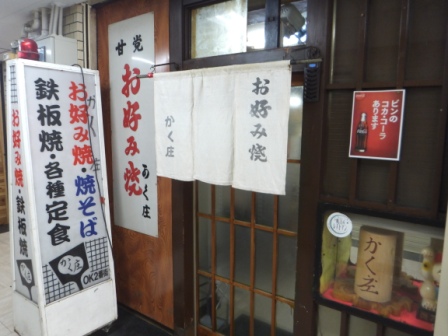 お好み焼・焼そば
鉄板焼・各種定食
かく庄
OK2番街
お好み焼・鉄板焼
甘党
お好み焼
かく庄
お好み焼
かく庄
ビンの
コカ・コーラ
あります
かく庄